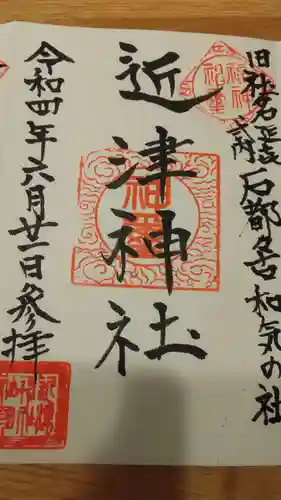 旧社名
式内 石都々古和気の社
近津神社
令和四年六月廿一日参拝